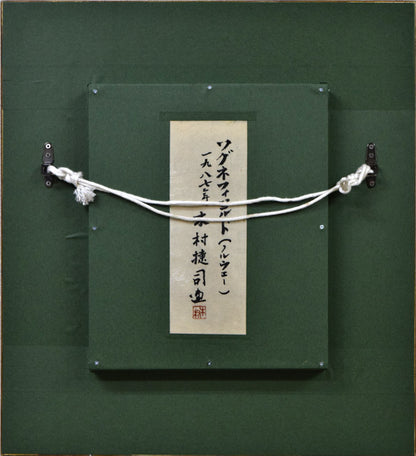 ソグネフィヨルド(ノルウェー)
一九八七年 木村捷司画